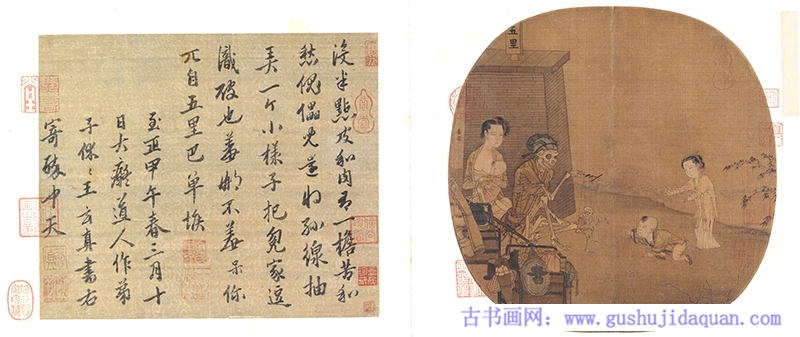 没半點皮和肉有一擔苦和
愁傀儡兒還將絲線抽
弄一个小樣子把冤家逗
識破也羞那不羞呆你
兀自五里巴單堠
至正甲午春三月十
日大癡道人作弟
子休〻王玄真書右
寄醉中天
五里
古书画网：www.gushujidaquan.com